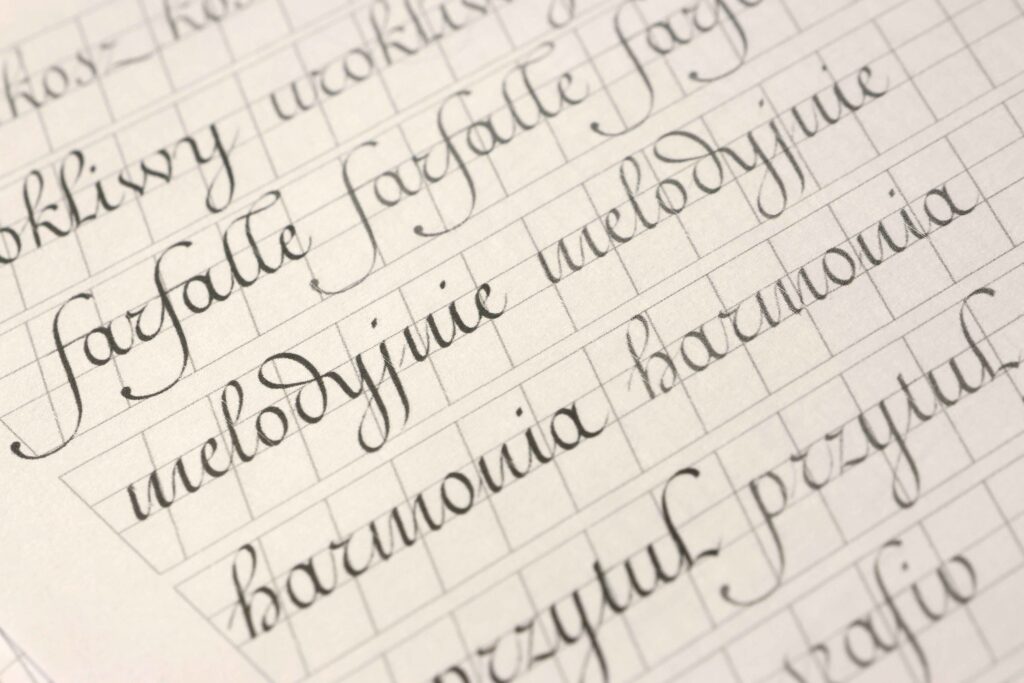 kosz kos
okliwy urokliw
farfalle farfalle farf
melodyjnie melodyjnie
harmonia harmonia
przytul przytul